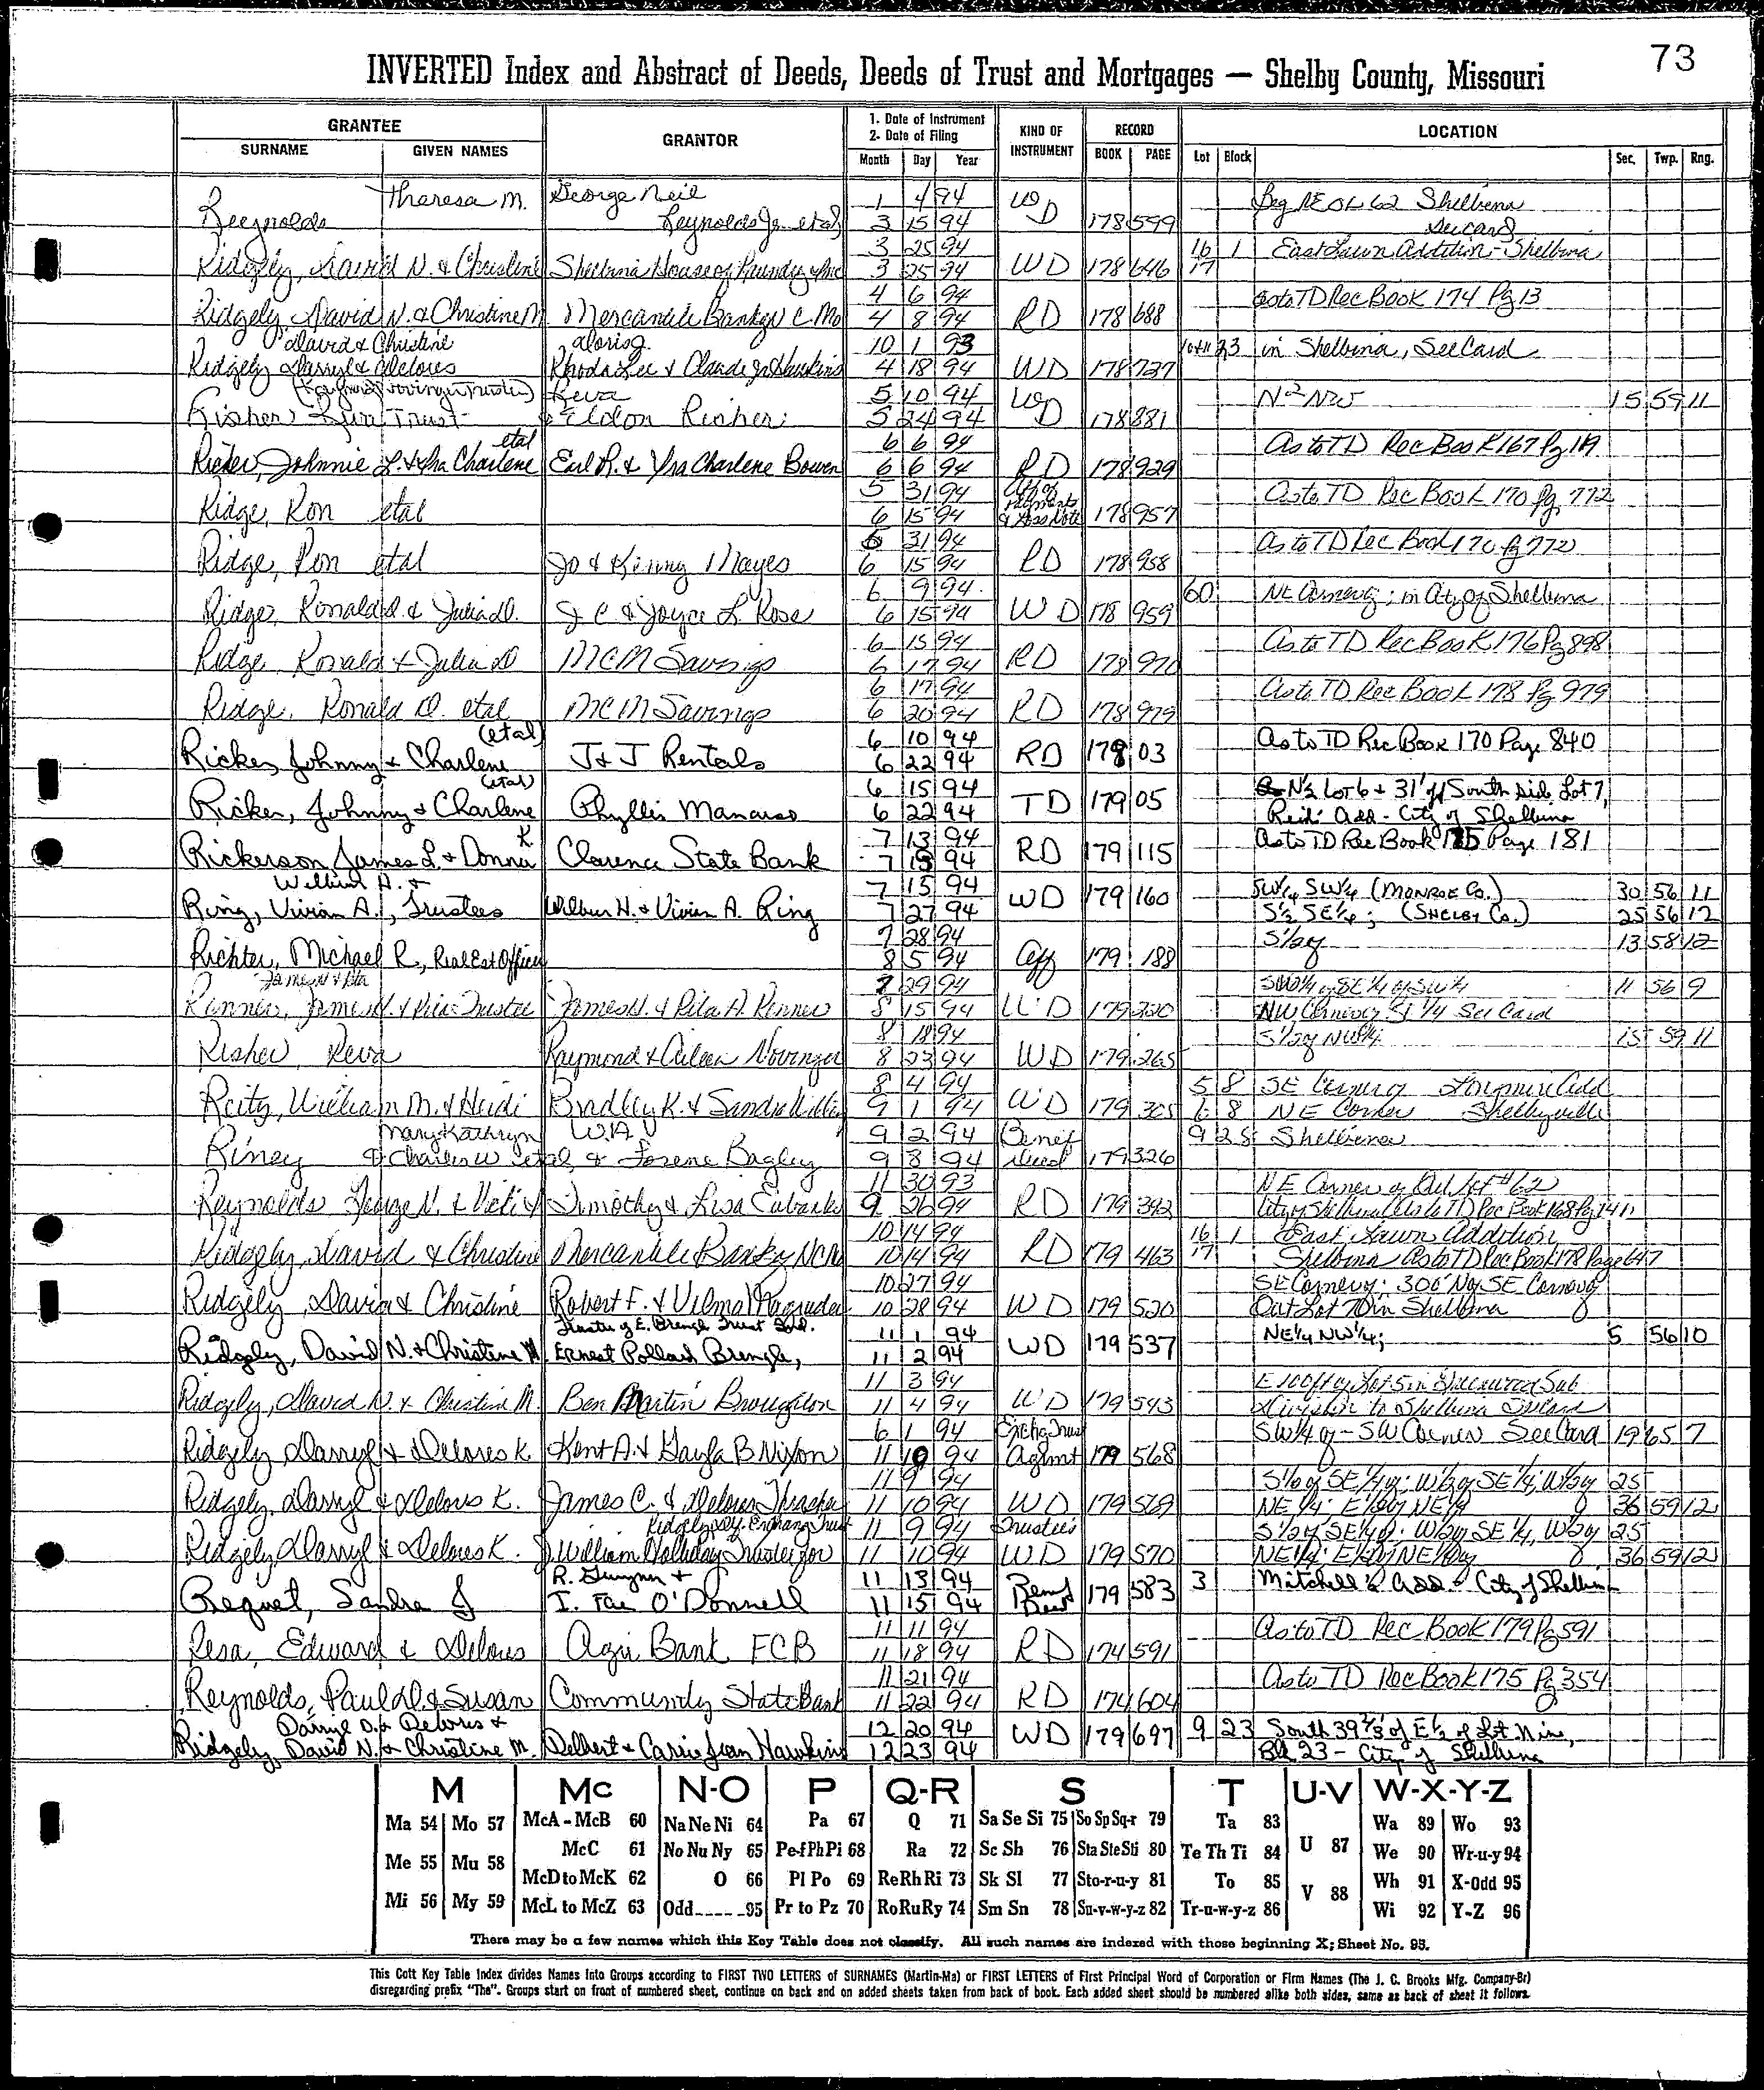 73
INVERTED Index and Abstract of Deeds, Deeds of Trust and Mortgages — Shelby County, Missouri
GRANTEE GRANTOR 1. Date of Instrument 2- Date of Filing KIND OF INSTRUMENT RECORD LOCATION
SURNAME GIVEN NAMES Month Day Year BOOK PAGE Lot Block Sec. Twp. Rng.
Theresa M. George Neil 1 4 94 WD Beg NE OL 62 Shelbina
Reeynolds Reynolds Jr. etal 3 15 94 178 599 See card
3 25 94 16 1 East Lawn Addition - Shelbina
Ridgely, David N. & Christine Shelbina House of Laundry Inc 3 25 94 WD 178 646 17
4 6 94 as to TD Rec Book 174 Pg 13
Ridgely, David N. & Christine M Mercantile Bank of N C Mo 4 8 94 RD 178 688
David & Christine 10 1 93 10+11 23 in Shelbina, See Card
Ridgely Darryl & Delores Rhoda Lee & Claude Jr 4 18 94 WD 178 737
Reva 5 10 94 WD N2 NW 15 59 11
Risher Trust & Eldon Risher 5 24 94 178 881
etal 6 6 94 As to TD Rec Book 167 Pg 119
Ricker, Johnnie L. & Yra Charlene Earl R. & Yra Charlene Bowen 6 6 94 RD 178 929
5 31 94 As to TD Rec Book 170 Pg 772
Ridge, Ron etal 6 15 94 178 957
31 94 As to TD Rec Book 170 Pg 772
Ridge, Ron etal Jo & Kenny Mayes 6 15 94 RD 178 958
6 9 94 60 NE Corner of; in City of Shelbina
Ridge, Ronald D. & Julia D. J C & Joyce L Rose 6 15 94 WD 178 959
6 15 94 As to TD Rec Book 176 Pg 898
Ridge Ronald & Julia D MCM Savings 6 17 94 RD 178 970
6 17 94 As to TD Rec Book 178 Pg 979
Ridge, Ronald D. etal MCM Savings 6 20 94 RD 178 979
(etal) 6 10 94 As to TD Rec Book 170 Page 840
Ricker, Johnny & Charlene J & J Rentals 6 22 94 RD 179 03
(etal) 6 15 94 N½ Lot 6 & 31' of South side Lot 7,
Ricker, Johnny & Charlene Phyllis Manuso 6 22 94 TD 179 05 Reid's Add - City of Shelbina
K 7 13 94 As to TD Rec Book 175 Page 181
Rickerson, James L. & Donna Clarence State Bank 7 94 RD 179 115
Wilbur H. & 7 15 94 SW¼ SW¼ (MONROE Co.) 30 56 11
Ring, Vivian A., Trustees Wilbur H. & Vivian A. Ring 7 27 94 WD 179 160 S½ SE¼; (SHELBY Co.) 25 56 12
7 28 94 S½ of 13 58 12
Richter, Michael R., Real Est Officer 8 5 94 Aff 179 188
James H & Rita 7 29 94 SW¼ of SE¼ of SW¼ 11 56 9
Renner, James H. & Rita Trustee James H. & Rita A. Renner 8 15 94 WD 179 220 NW Corner of SE ¼ See Card
8 18 94 S½ of NW¼ 15 59 11
Risher, Reva Raymond & Aileen Novinger 8 23 94 WD 179 265
8 4 94 5 8 SE Corner of Add
Reitz, William M. & Heidi Bradley K. & Sandra 9 1 94 WD 179 305 6 8 NE Corner Shelbyville
Mary Kathryn W.A. 9 2 94 Benef 9 25 Shelbina
Riney & Charles W etal & Lorene Bagley 9 8 94 deed 179 326
11 30 93 NE Corner of Out Lot #62
Reynolds George N. & Vicki Timothy & Lisa Eubanks 9 26 94 RD 179 392 City of Shelbina As to TD Rec Book 168 Pg 1411
10 14 94 16 1 East Lawn Addition
Ridgely, David & Christine Mercantile Bank of NCMo 10 14 94 RD 179 463 17 Shelbina As to TD Rec Book 178 Page 647
10 27 94 SE Corner of; 300' N of SE Corner of
Ridgely, David & Christine Robert F. & Velma Magruder 10 28 94 WD 179 520 Out Lot 70 in Shelbina
Trustee of E. Brengle Trust 11 1 94 NE¼ NW¼; 5 56 10
Ridgely, David N. & Christine M Ernest Pollard Brengle, 11 2 94 WD 179 537
11 3 94 E 100ft of Lot 5 in Sub
Ridgely, David N. & Christine M. Ben Martin Broughton 11 4 94 WD 179 543 division to Shelbina See card
6 1 94 Exchg Trust SW¼ of - SW Corner See Card 19 65 7
Ridgely Darryl & Delores K Kent A. & Gayla B Nixon 11 10 94 Agrmt 179 568
11 9 94 S½ of SE¼ of; W½ of SE¼, W½ of 25
Ridgely, Darryl & Delores K. James C. & Delores Thrasher 11 10 94 WD 179 569 NE¼; E½ of NE¼ 36 59 12
Ridgely Exchange Trust 11 9 94 Trustee's S½ of SE¼ of; W½ of SE¼, W½ of 25
Ridgely Darryl & Delores K. J William Holliday Trustee for 11 10 94 WD 179 570 NE¼; E½ of NE¼ of 36 59 12
R. Gwynn & 11 13 94 Benef 3 Mitchell's Add - City of Shelbina
Requet, Sandra J I. Fae O'Donnell 11 15 94 Deed 179 583
11 11 94 As to TD Rec Book 179 Pg 591
Resa, Edward & Delores Agri Bank FCB 11 18 94 RD 174 591
11 21 94 As to TD Rec Book 175 Pg 354
Reynolds, Paul D. & Susan Community State Bank 11 22 94 RD 174 604
Darryl D. & Delores & 12 20 94 9 23 South 39⅔' of E½ of Lot Nine,
Ridgely, David N. & Christine M. Delbert & Carrie Jean Hawkins 12 23 94 WD 179 697 Blk 23 - City of Shelbina
M Mc N-O P Q-R S T U-V W-X-Y-Z
Ma 54 Mo 57 McA - McB 60 Na Ne Ni 64 Pa 67 Q 71 Sa Se Si 75 So Sp Sq-r 79 Ta 83 Wa 89 Wo 93
Me 55 Mu 58 McC 61 No Nu Ny 65 Pe-f Ph Pi 68 Ra 72 Sc Sh 76 Sta Ste Sti 80 Te Th Ti 84 U 87 We 90 Wr-u-y 94
McD to McK 62 O 66 Pl Po 69 Re Rh Ri 73 Sk Sl 77 Sto-r-u-y 81 To 85 Wh 91 X-Odd 95
Mi 56 My 59 McL to McZ 63 Odd 95 Pr to Pz 70 Ro Ru Ry 74 Sm Sn 78 Su-v-w-y-z 82 Tr-u-w-y-z 86 V 88 Wi 92 Y-Z 96
There may be a few names which this Key Table does not classify. All such names are indexed with those beginning X; Sheet No. 95.
This Cott Key Table Index divides Names into Groups according to FIRST TWO LETTERS of SURNAMES (Martin-Ma) or FIRST LETTERS of First Principal Word of Corporation or Firm Names (The J. C. Brooks Mfg. Company-Br)
disregarding prefix "The". Groups start on front of numbered sheet, continue on back and on added sheets taken from back of book. Each added sheet should be numbered alike both sides, same as back of sheet it follows.